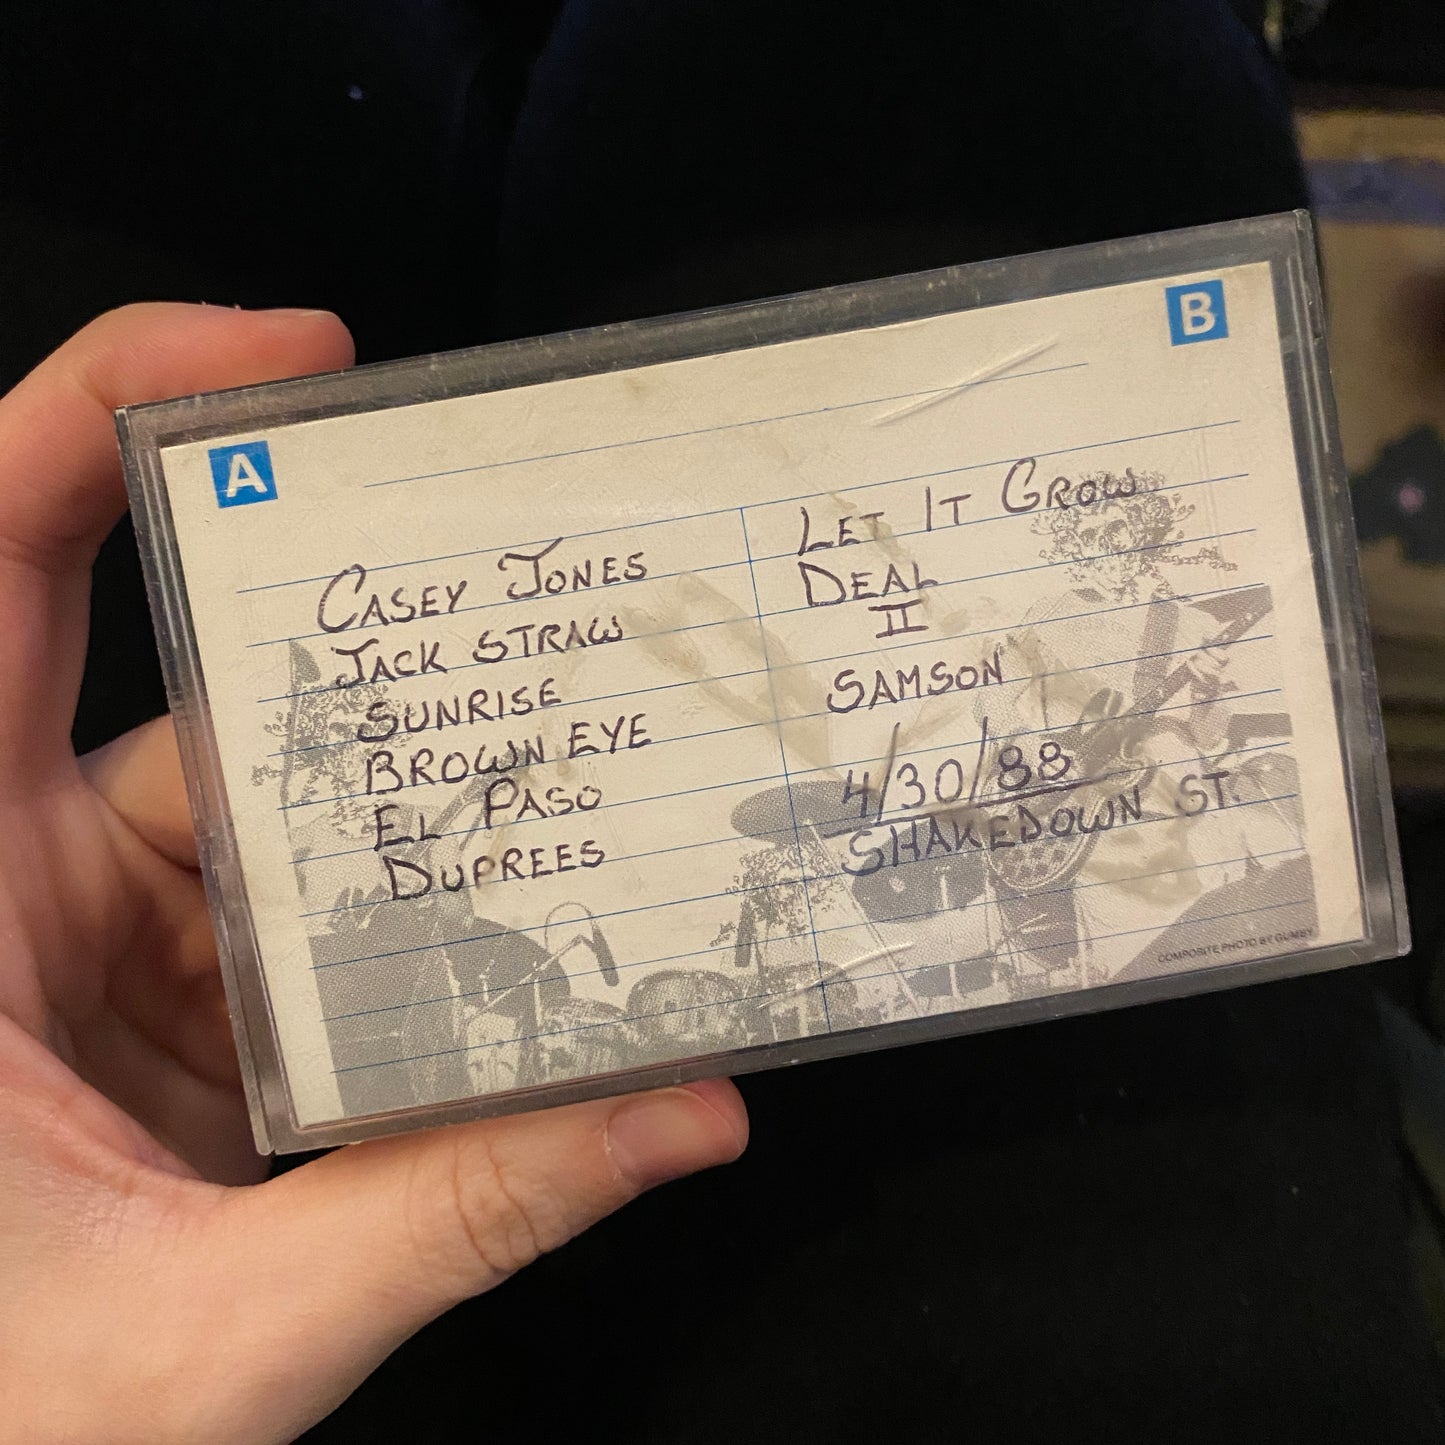 A
CASEY JONES
JACK STRAW
SUNRISE
BROWN EYE
EL PASO
DUPREES
B
LET IT GROW
DEAL
II
SAMSON
4/30/88
SHAKEDOWN ST.
COMPOSITE PHOTO BY GUMBY